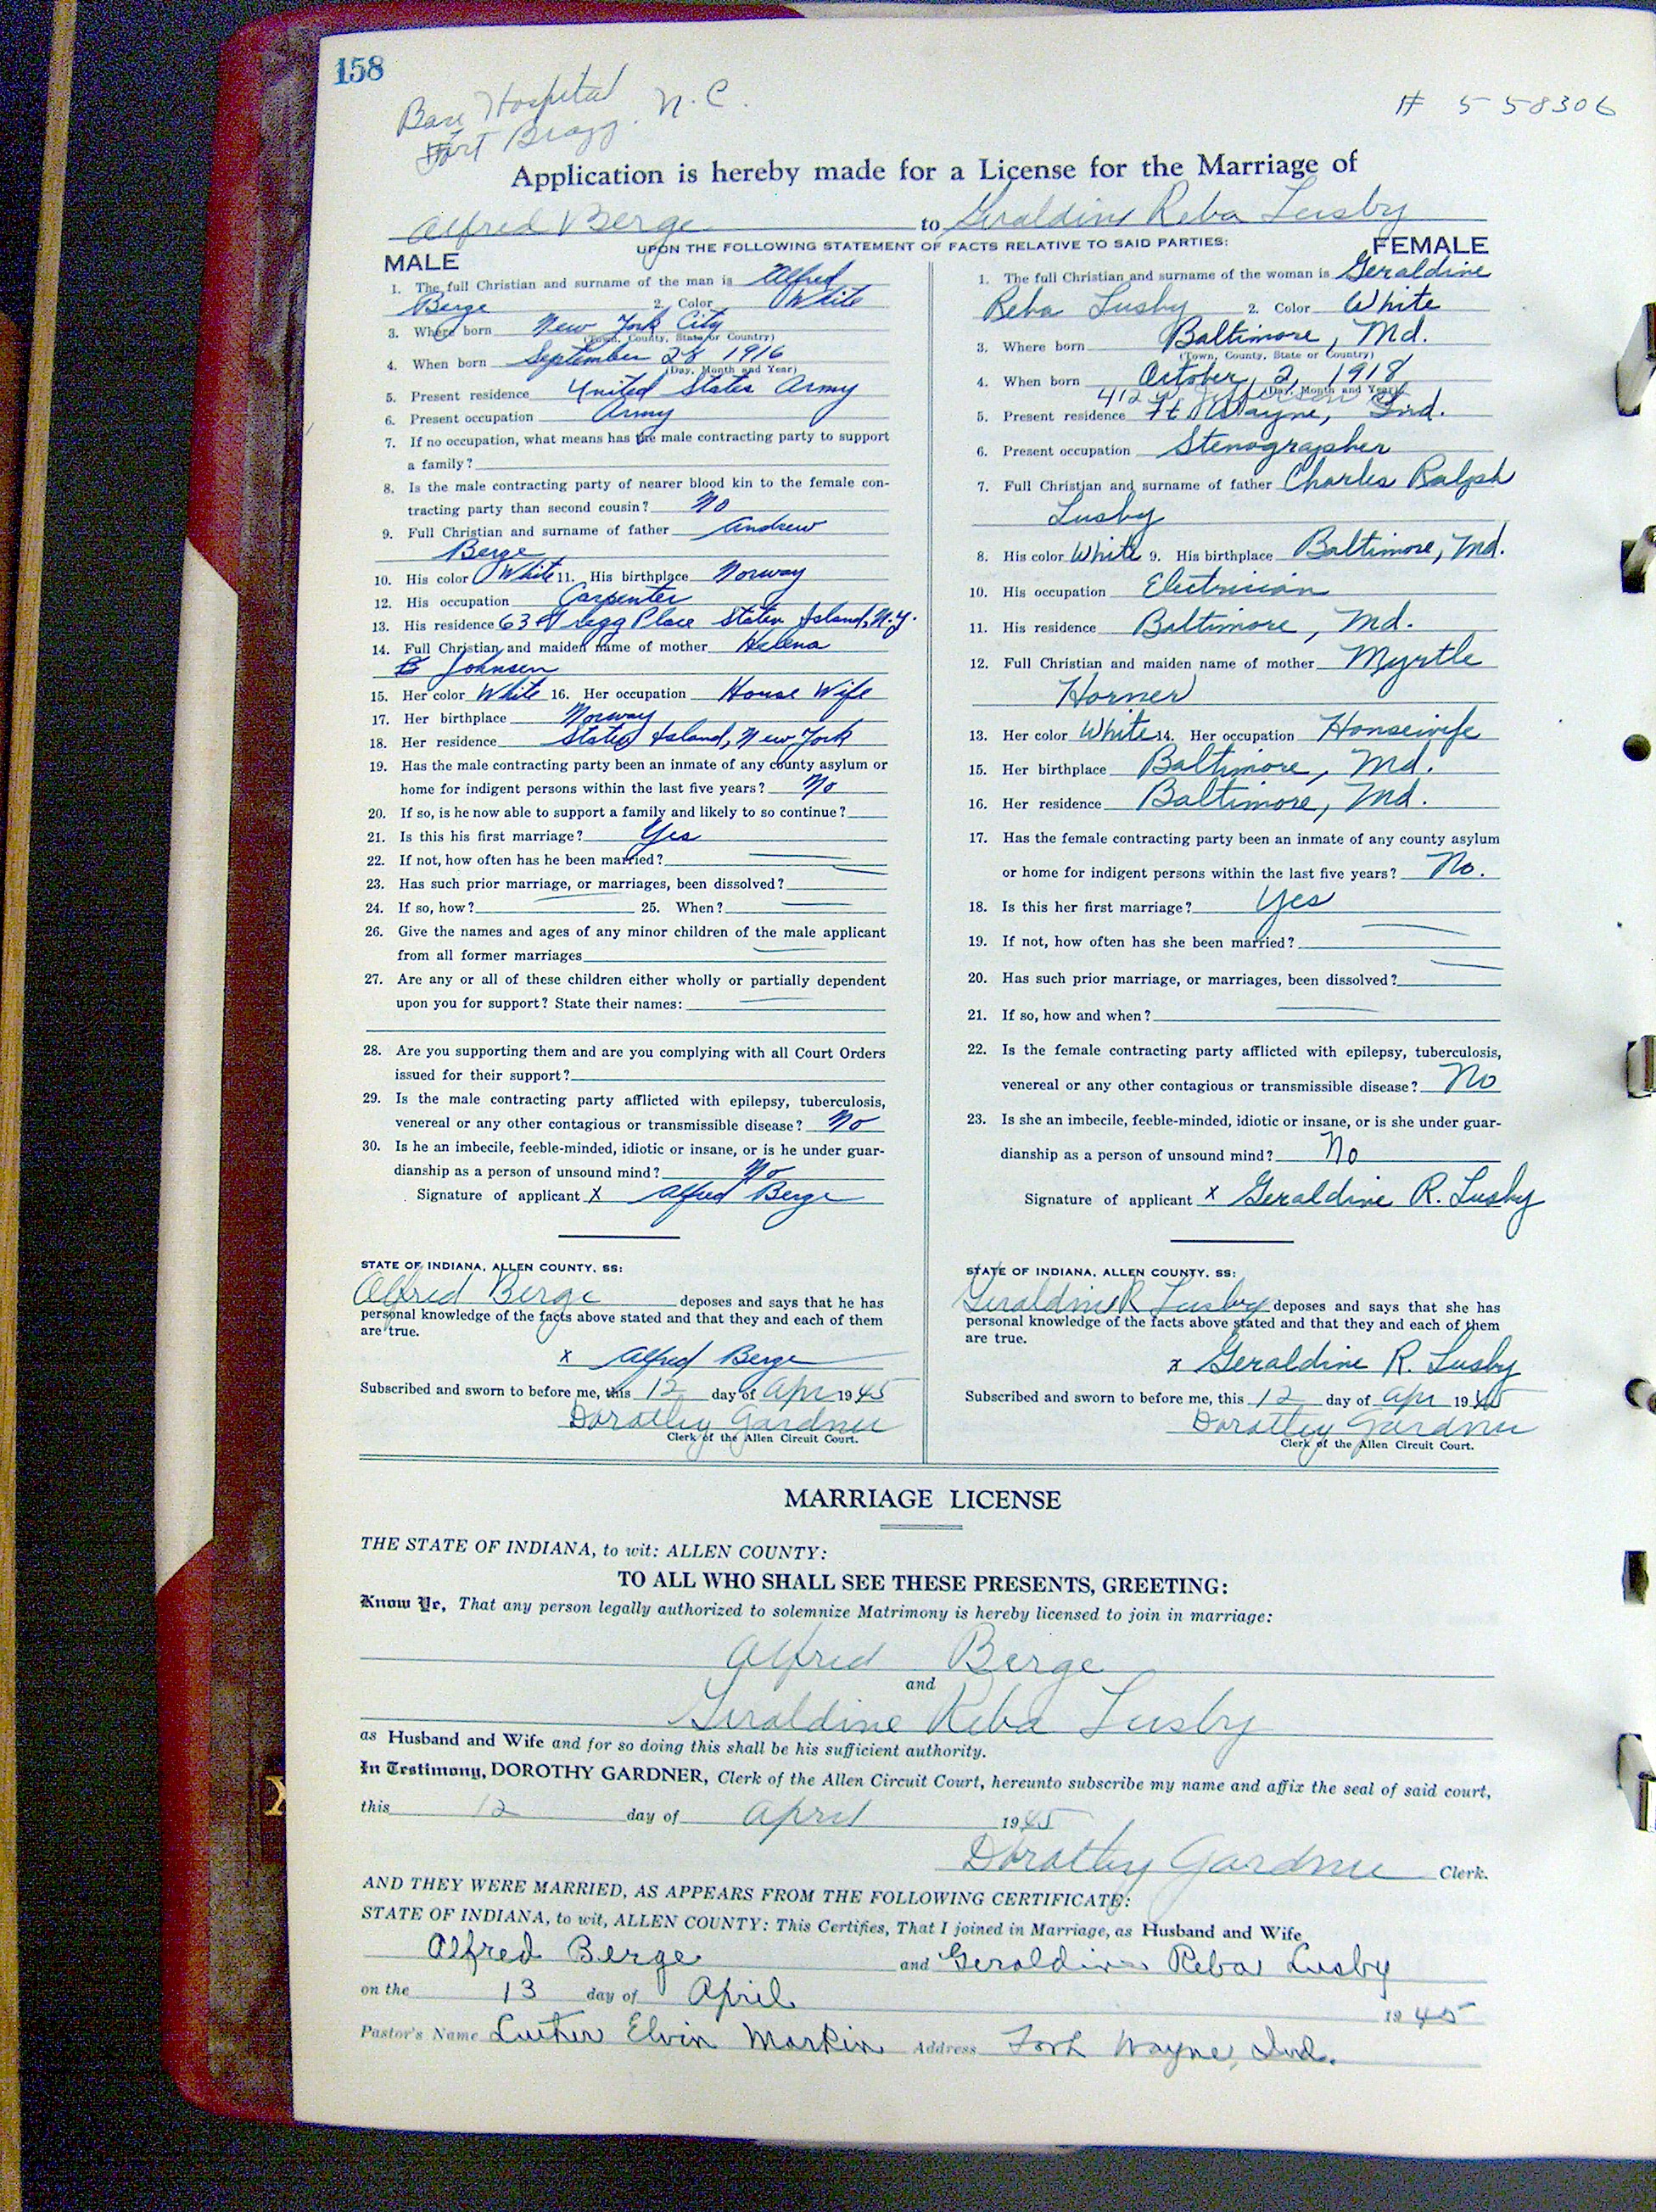 158
Base Hospital
Fort Bragg. N.C.
# 558306
Application is hereby made for a License for the Marriage of
Alfred Berge to Geraldine Reba Lusby
UPON THE FOLLOWING STATEMENT OF FACTS RELATIVE TO SAID PARTIES:
MALE
1. The full Christian and surname of the man is Alfred
Berge 2. Color White
3. Where born New York City
(Town, County, State or Country)
4. When born September 28 1916
(Day, Month and Year)
5. Present residence United States Army
6. Present occupation Army
7. If no occupation, what means has the male contracting party to support
a family?
8. Is the male contracting party of nearer blood kin to the female con-
tracting party than second cousin? No
9. Full Christian and surname of father Andrew
Berge
10. His color White 11. His birthplace Norway
12. His occupation Carpenter
13. His residence 63 Place Staten Island, N.Y.
14. Full Christian and maiden name of mother Helena
Johnsen
15. Her color White 16. Her occupation House Wife
17. Her birthplace Norway
18. Her residence Staten Island, New York
19. Has the male contracting party been an inmate of any county asylum or
home for indigent persons within the last five years? No
20. If so, is he now able to support a family and likely to so continue?
21. Is this his first marriage? Yes
22. If not, how often has he been married?
23. Has such prior marriage, or marriages, been dissolved?
24. If so, how? 25. When?
26. Give the names and ages of any minor children of the male applicant
from all former marriages
27. Are any or all of these children either wholly or partially dependent
upon you for support? State their names:
28. Are you supporting them and are you complying with all Court Orders
issued for their support?
29. Is the male contracting party afflicted with epilepsy, tuberculosis,
venereal or any other contagious or transmissible disease? No
30. Is he an imbecile, feeble-minded, idiotic or insane, or is he under guar-
dianship as a person of unsound mind? No
Signature of applicant X Alfred Berge
STATE OF INDIANA, ALLEN COUNTY, SS:
Alfred Berge deposes and says that he has
personal knowledge of the facts above stated and that they and each of them
are true.
x Alfred Berge
Subscribed and sworn to before me, this 12 day of Apr 1945
Dorothy Gardner
Clerk of the Allen Circuit Court.
FEMALE
1. The full Christian and surname of the woman is Geraldine
Reba Lusby 2. Color White
3. Where born Baltimore, Md.
(Town, County, State or Country)
4. When born October 2, 1918
(Day, Month and Year)
412 W. Jefferson
5. Present residence Ft. Wayne, Ind.
6. Present occupation Stenographer
7. Full Christian and surname of father Charles Ralph
Lusby
8. His color White 9. His birthplace Baltimore, Md.
10. His occupation Electrician
11. His residence Baltimore, Md.
12. Full Christian and maiden name of mother Myrtle
Horner
13. Her color White 14. Her occupation Housewife
15. Her birthplace Baltimore, Md.
16. Her residence Baltimore, Md.
17. Has the female contracting party been an inmate of any county asylum
or home for indigent persons within the last five years? No.
18. Is this her first marriage? Yes
19. If not, how often has she been married?
20. Has such prior marriage, or marriages, been dissolved?
21. If so, how and when?
22. Is the female contracting party afflicted with epilepsy, tuberculosis,
venereal or any other contagious or transmissible disease? No
23. Is she an imbecile, feeble-minded, idiotic or insane, or is she under guar-
dianship as a person of unsound mind? No
Signature of applicant x Geraldine R. Lusby
STATE OF INDIANA, ALLEN COUNTY, SS:
Geraldine R Lusby deposes and says that she has
personal knowledge of the facts above stated and that they and each of them
are true.
x Geraldine R. Lusby
Subscribed and sworn to before me, this 12 day of Apr 1945
Dorothy Gardner
Clerk of the Allen Circuit Court.
MARRIAGE LICENSE
THE STATE OF INDIANA, to wit: ALLEN COUNTY:
TO ALL WHO SHALL SEE THESE PRESENTS, GREETING:
Know Ye, That any person legally authorized to solemnize Matrimony is hereby licensed to join in marriage:
Alfred Berge
and
Geraldine Reba Lusby
as Husband and Wife and for so doing this shall be his sufficient authority.
In Testimony, DOROTHY GARDNER, Clerk of the Allen Circuit Court, hereunto subscribe my name and affix the seal of said court,
this 12 day of April 1945
Dorothy Gardner Clerk.
AND THEY WERE MARRIED, AS APPEARS FROM THE FOLLOWING CERTIFICATE:
STATE OF INDIANA, to wit, ALLEN COUNTY: This Certifies, That I joined in Marriage, as Husband and Wife
Alfred Berge and Geraldine Reba Lusby
on the 13 day of April 1945
Pastor's Name Luther Elvin Markin Address Fort Wayne, Ind.